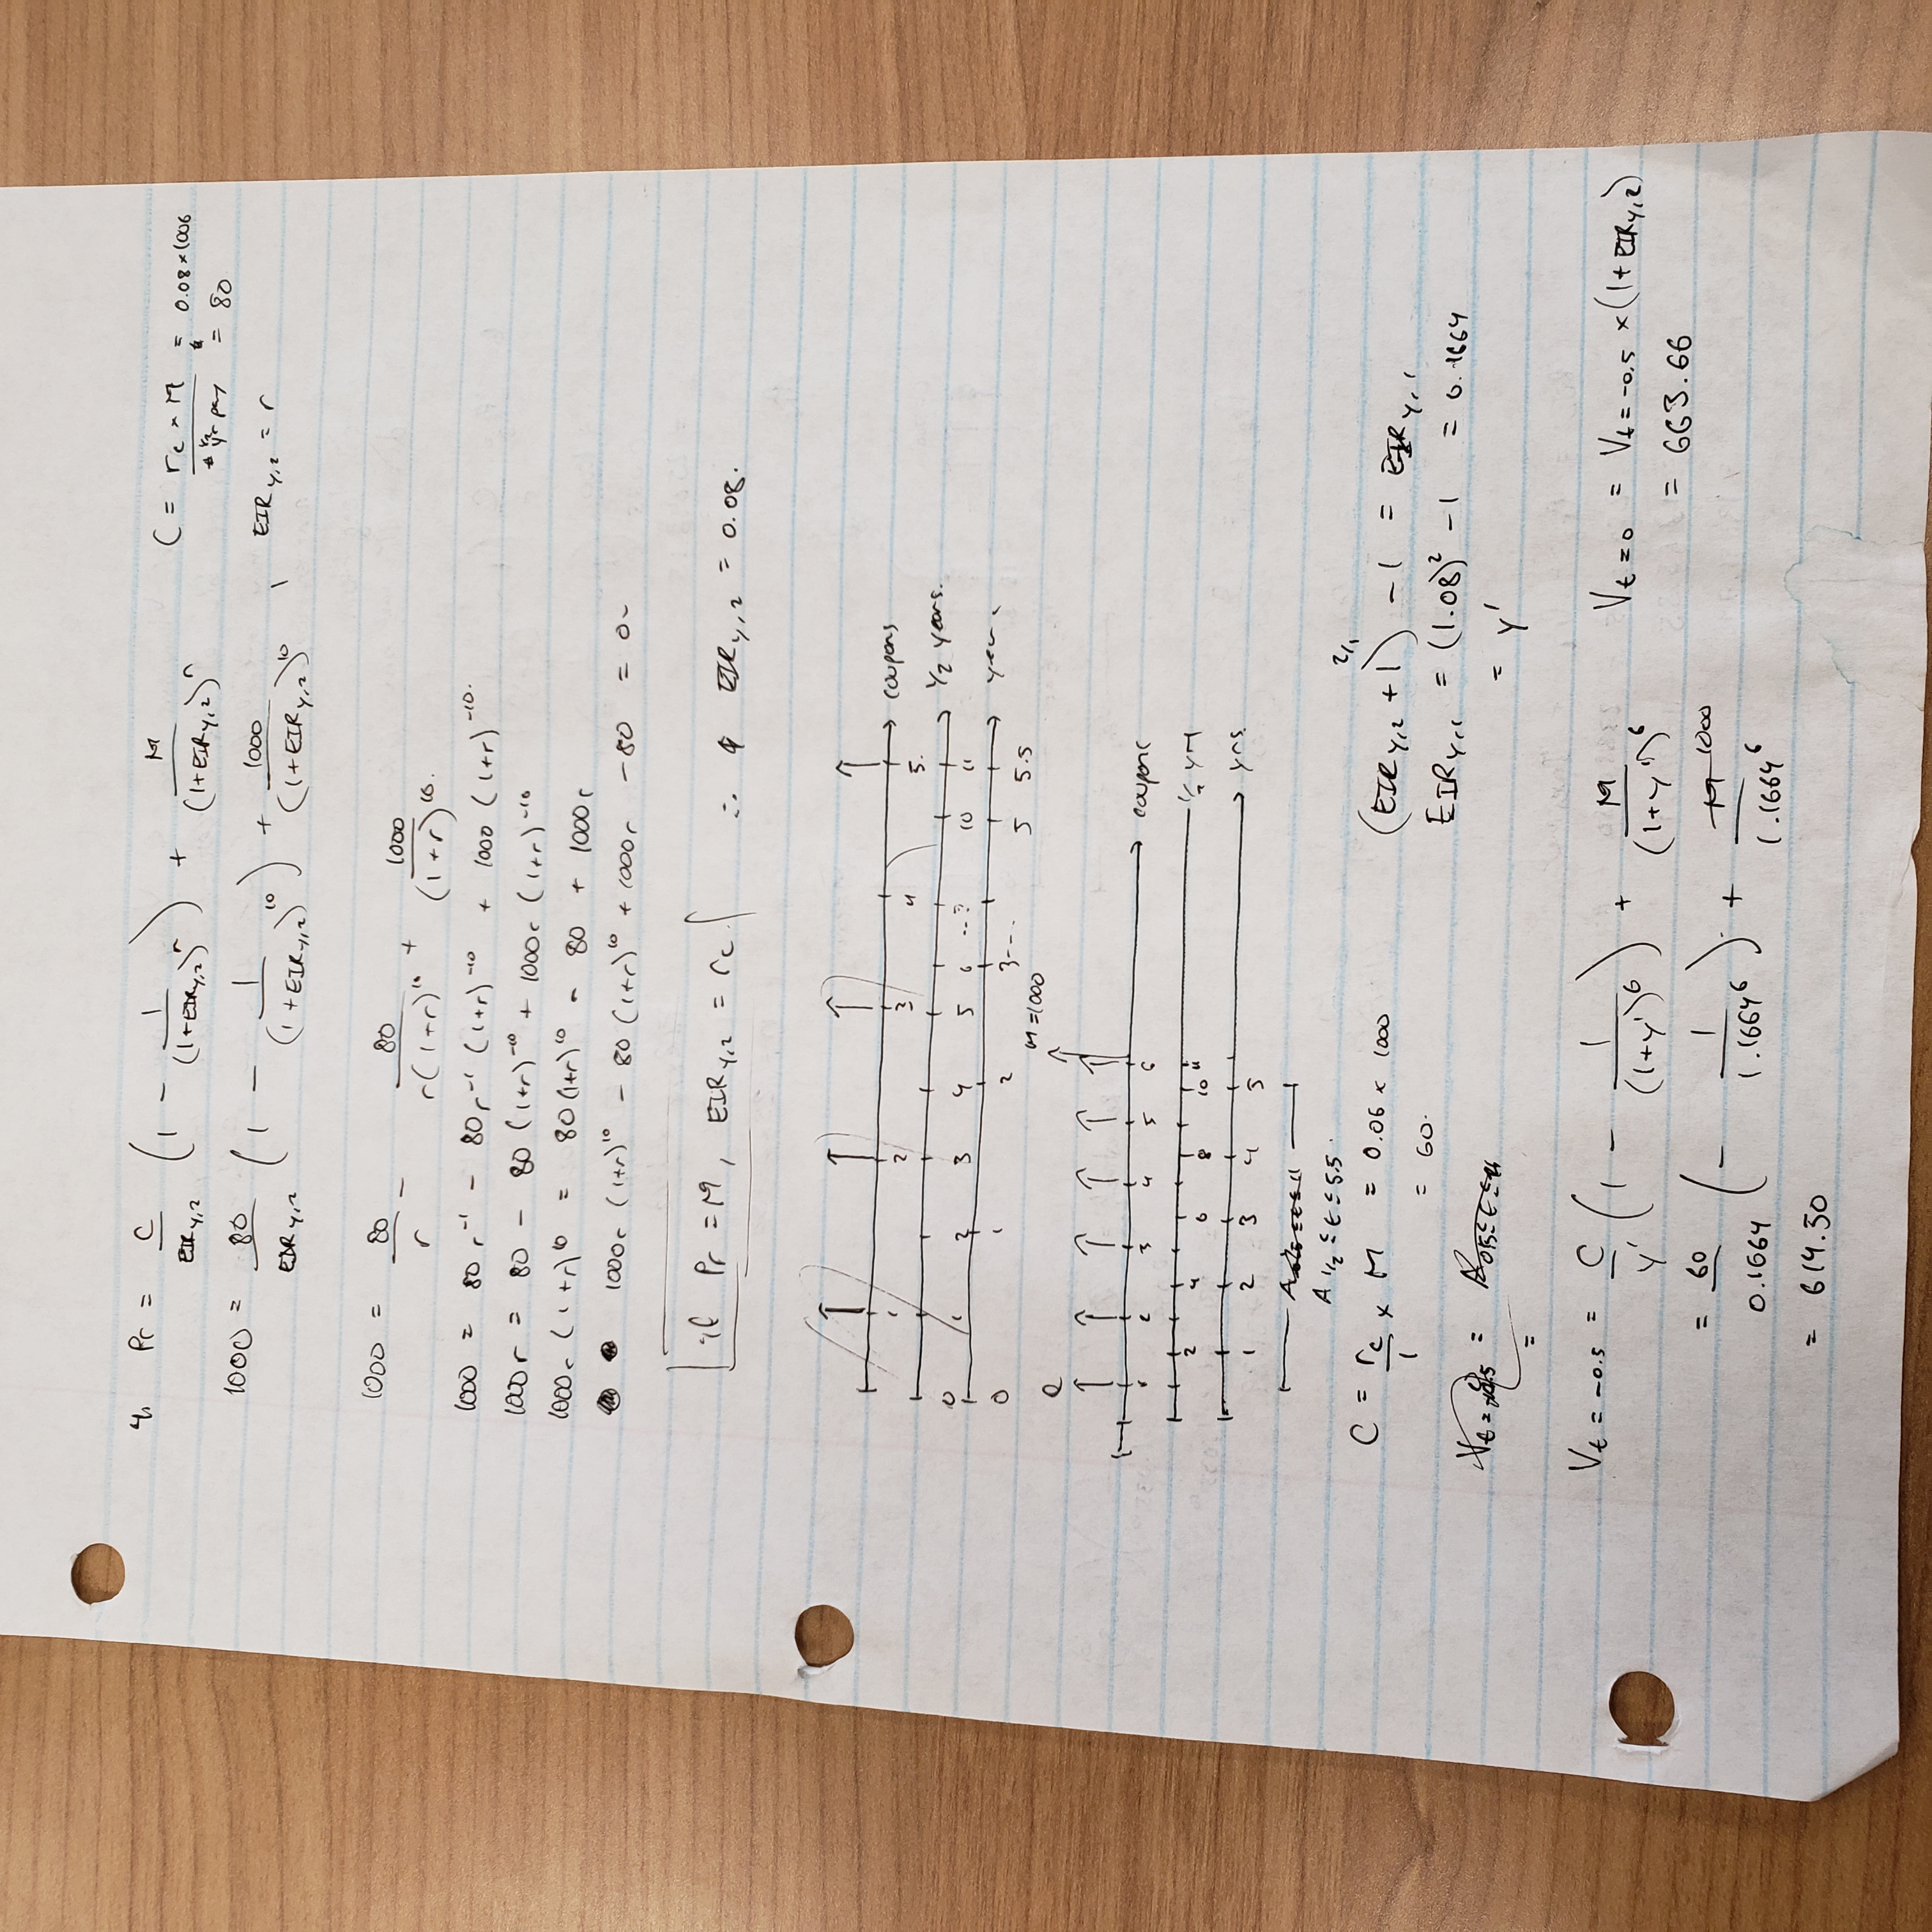 4. Pr = C / EIR_{y,2} (1 - 1 / (1+EIR_{y,2})^n) + M / (1+EIR_{y,2})^n
C = r_c × M / yr pay = 0.08 × 1000
= 80
1000 = 80 / EIR_{y,2} (1 - 1 / (1+EIR_{y,2})^{10}) + 1000 / (1+EIR_{y,2})^{10} , EIR_{y,2} = r
1000 = 80 / r - 80 / r(1+r)^{10} + 1000 / (1+r)^{10}.
1000 = 80 r^{-1} - 80 r^{-1} (1+r)^{-10} + 1000 (1+r)^{-10}.
1000 r = 80 - 80 (1+r)^{-10} + 1000 r (1+r)^{-10}
1000 r (1+r)^{10} = 80 (1+r)^{10} - 80 + 1000 r
1000 r (1+r)^{10} - 80 (1+r)^{10} + 1000 r - 80 = 0
if Pr = M, EIR_{y,2} = r_c ∴ EIR_{y,2} = 0.08.
1 2 3 4 5. coupons
0 1 2 3 4 5 6 ..? 10 11 1/2 years.
0 1 2 3--. 5 5.5 years
M = 1000
1 2 3 4 5 6 coupons
2 4 6 8 10 11 1/2 yrs
1 2 3 4 5 yrs.
A 1/2 ≤ t ≤ 5.5.
C = r_c / 1 × M = 0.06 × 1000
= 60.
(EIR_{y,2} + 1)^{2/1} - 1 = EIR_{y,1}
EIR_{y,1} = (1.08)^2 - 1 = 0.1664
= y'
V_{t = -0.5} = C / y' (1 - 1 / (1+y')^6) + M / (1+y')^6
= 60 / 0.1664 ( - 1 / 1.1664^6) + 1000 / 1.1664^6
= 614.50
V_{t=0} = V_{t=-0.5} × (1+EIR_{y,2})
= 663.66